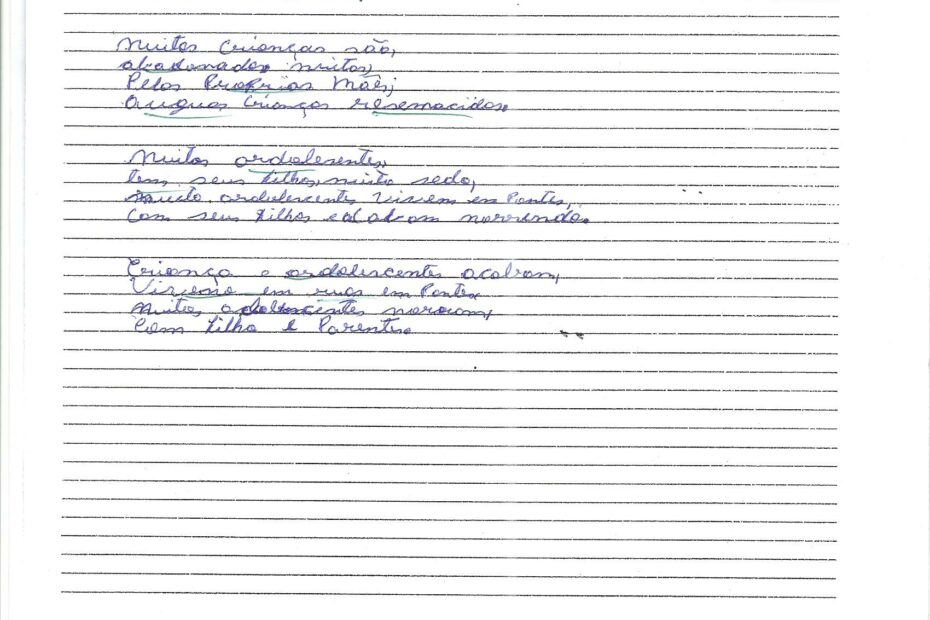 Muitas crianças são,
abadonados muitos,
Pelos Proprias Mães,
crianças resemacidos.
Muitos ardolesentes,
tem seus filhos, muito sedo,
muito ardolescentes vivem em Pontes,
com seus filhos e morrendo.
Criança e ardolescentes acabam,
em ruas em Pontes
Muitos adolescentes moram,
Com filho e Parentes.